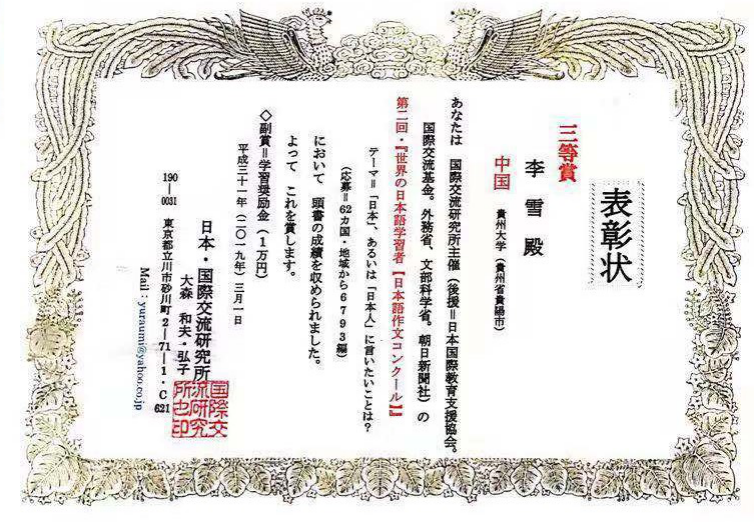 表彰状
三等賞
李 雪 殿
中国 貴州大学（貴州省貴陽市）
あなたは 国際交流研究所主催（後援＝日本国際教育支援協会。
国際交流基金。外務省、文部科学省。朝日新聞社）の
第二回・『世界の日本語学習者【日本語作文コンクール】』
テーマ＝「日本」、あるいは「日本人」に言いたいことは？
（応募＝62カ国・地域から６７９３編）
において 頭書の成績を収められました。
よって これを賞します。
◇副賞＝学習奨励金（１万円）
平成三十一年（二〇一九年）三月一日
日本・国際交流研究所
大森 和夫・弘子
190―0031 東京都立川市砂川町2―71―1・C621
Mail：yuraumi@yahoo.co.jp
国際交
流研究
所之印